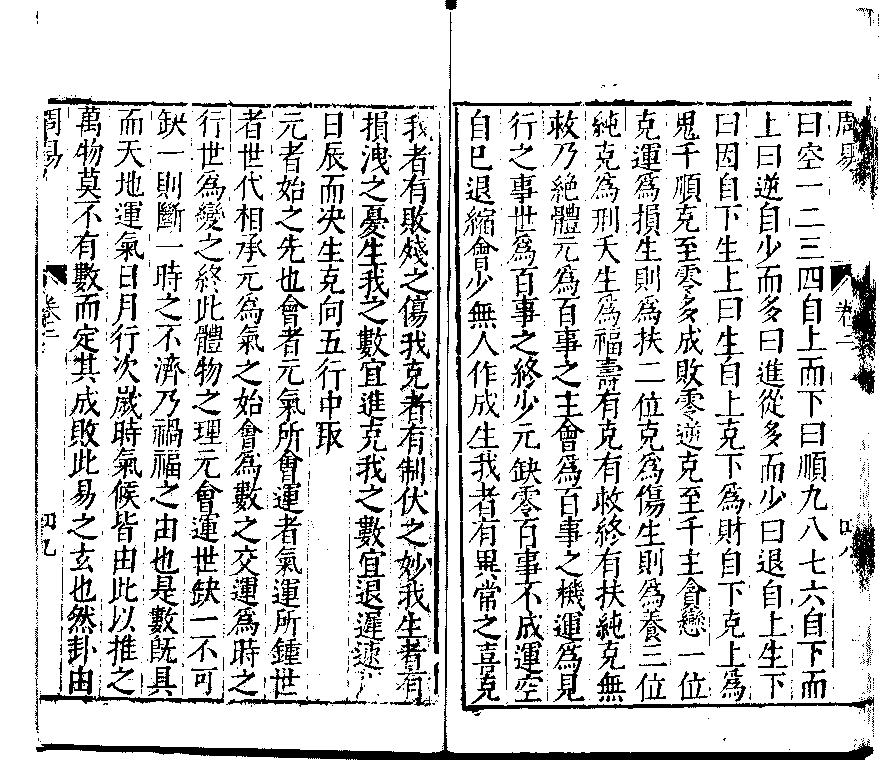 周易 卷二 四八
曰空一二三四自上而下曰順九八七六自下而
上曰逆自少而多曰進從多而少曰退自上生下
曰因自下生上曰生自上克下為財自下克上為
鬼千順克至零多成敗零逆克至千主貪戀一位
克運為損生則為扶二位克為傷生則為養三位
純克為刑夭生為福壽有克有救終有扶純克無
救乃絶體元為百事之主會為百事之機運為見
行之事世為百事之終少元缺零百事不成運空
自巳退縮會少無人作成生我者有異常之喜克
我者有敗殘之傷我克者有制伏之妙我生者有
損洩之憂生我之數宜進克我之數宜退遲速
日辰而决生克向五行中取
元者始之先也會者元氣所會運者氣運所鍾世
者世代相承元為氣之始會為數之交運為時之
行世為變之終此體物之理元會運世缺一不可
缺一則斷一時之不濟乃禍福之由也是數旣具
而天地運氣日月行次歲時氣候皆由此以推之
萬物莫不有數而定其成敗此易之玄也然卦由
周易 卷二 四九